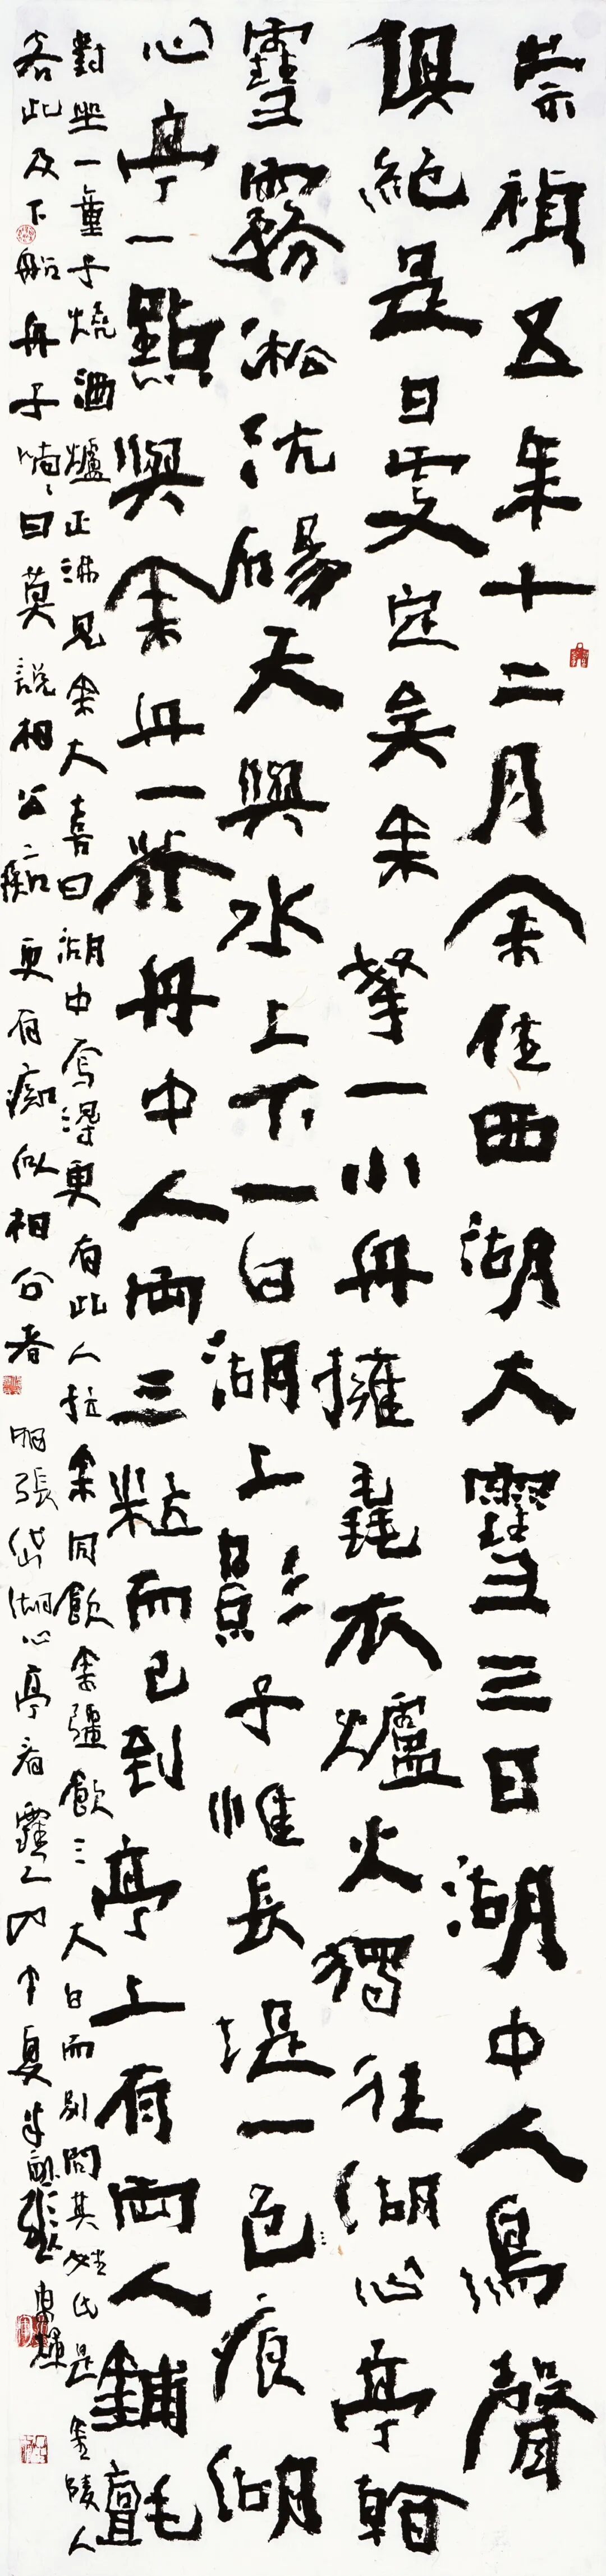 崇禎五年十二月余住西湖大雪三日湖中人鳥聲
俱絕是日更定矣余拏一小舟擁毳衣爐火獨往湖心亭看
雪霧淞沆碭天與水上下一白湖上影子惟長堤一色痕湖
心亭一點與余舟一芥舟中人兩三粒而已到亭上有兩人鋪氈
對坐一童子燒酒爐正沸見余大喜曰湖中焉得更有此人拉余同飲余彊飲三大白而別問其姓氏是金陵人
客此及下船舟子喃〻曰莫說相公痴更有痴似相公者 明張岱湖心亭看雪 乙巳中夏